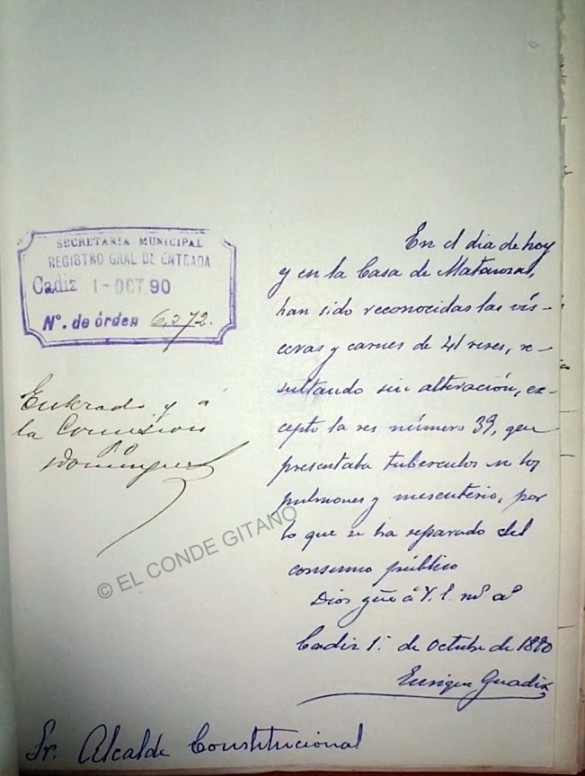 SECRETARÍA MUNICIPAL
REGISTRO GRAL DE ENTRADA
Cadiz 1-OCT 90
Nº. de órden 6,072.
Enterado y á
la Comision
P.O.
Dominguez
En el dia de hoy
y en la Casa de Matanzas,
han sido reconocidas las vis-
ceras y carnes de 41 reses, re-
sultando sin alteración, ex-
cepto la res número 39, que
presentaba tuberculos en los
pulmones y mesenterio, por
lo que se ha separado del
consumo público
Dios gûe á V. I. mˢ aˢ
Cadiz 1º de Octubre de 1890
Enrique Guadix
Sr. Alcalde Constitucional
© EL CONDE GITANO